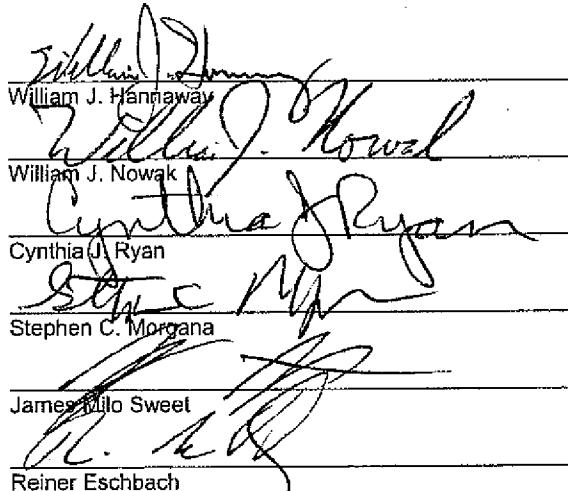 William J. Hannaway
William J. Hannaway
William J. Nowak
William J. Nowak
Cynthia J Ryan
Cynthia J. Ryan
Stephen C. Morgana
James Milo Sweet
R.
Reiner Eschbach